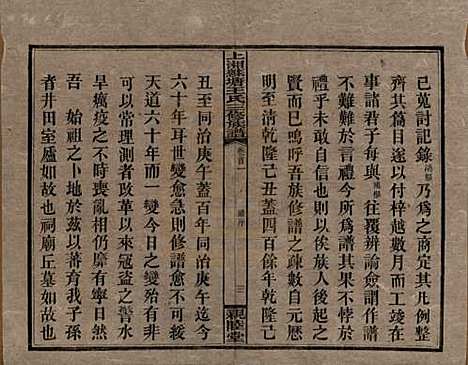 已蒐討記錄乃爲之商定其凡例整
齊其篇目遂以付梓越數月而工竣在
事諸君子每與往覆辨論僉謂作譜
不難難於言禮今所爲譜其不悖於禮
自信也則以俟族人後起者可
賢而已其嗚呼吾族修譜之疎數自元歷
明至清乾隆己丑蓋四百餘年乾隆己
上湘蘇塘王氏三修族譜
卷首一
譜序
三
親睦堂
丑至同治庚午蓋百年同治庚午
六十年耳世變愈急則修譜愈不可
天道六十年而一變今日之變
可以常理測者改革以來寇盜之警水
旱癘疫之不時喪亂相仍靡有寧日然
吾 始祖之卜地於茲以蕃育我
者井田室廬如故也祠廟丘墓如故也